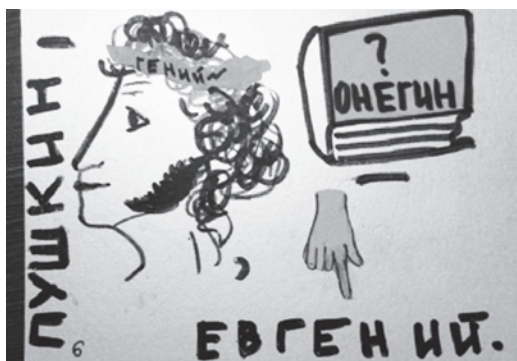 ПУШКИН –
ГЕНИЙ~
,
?
ОНЕГИН
–
ЕВГЕНИЙ.
6